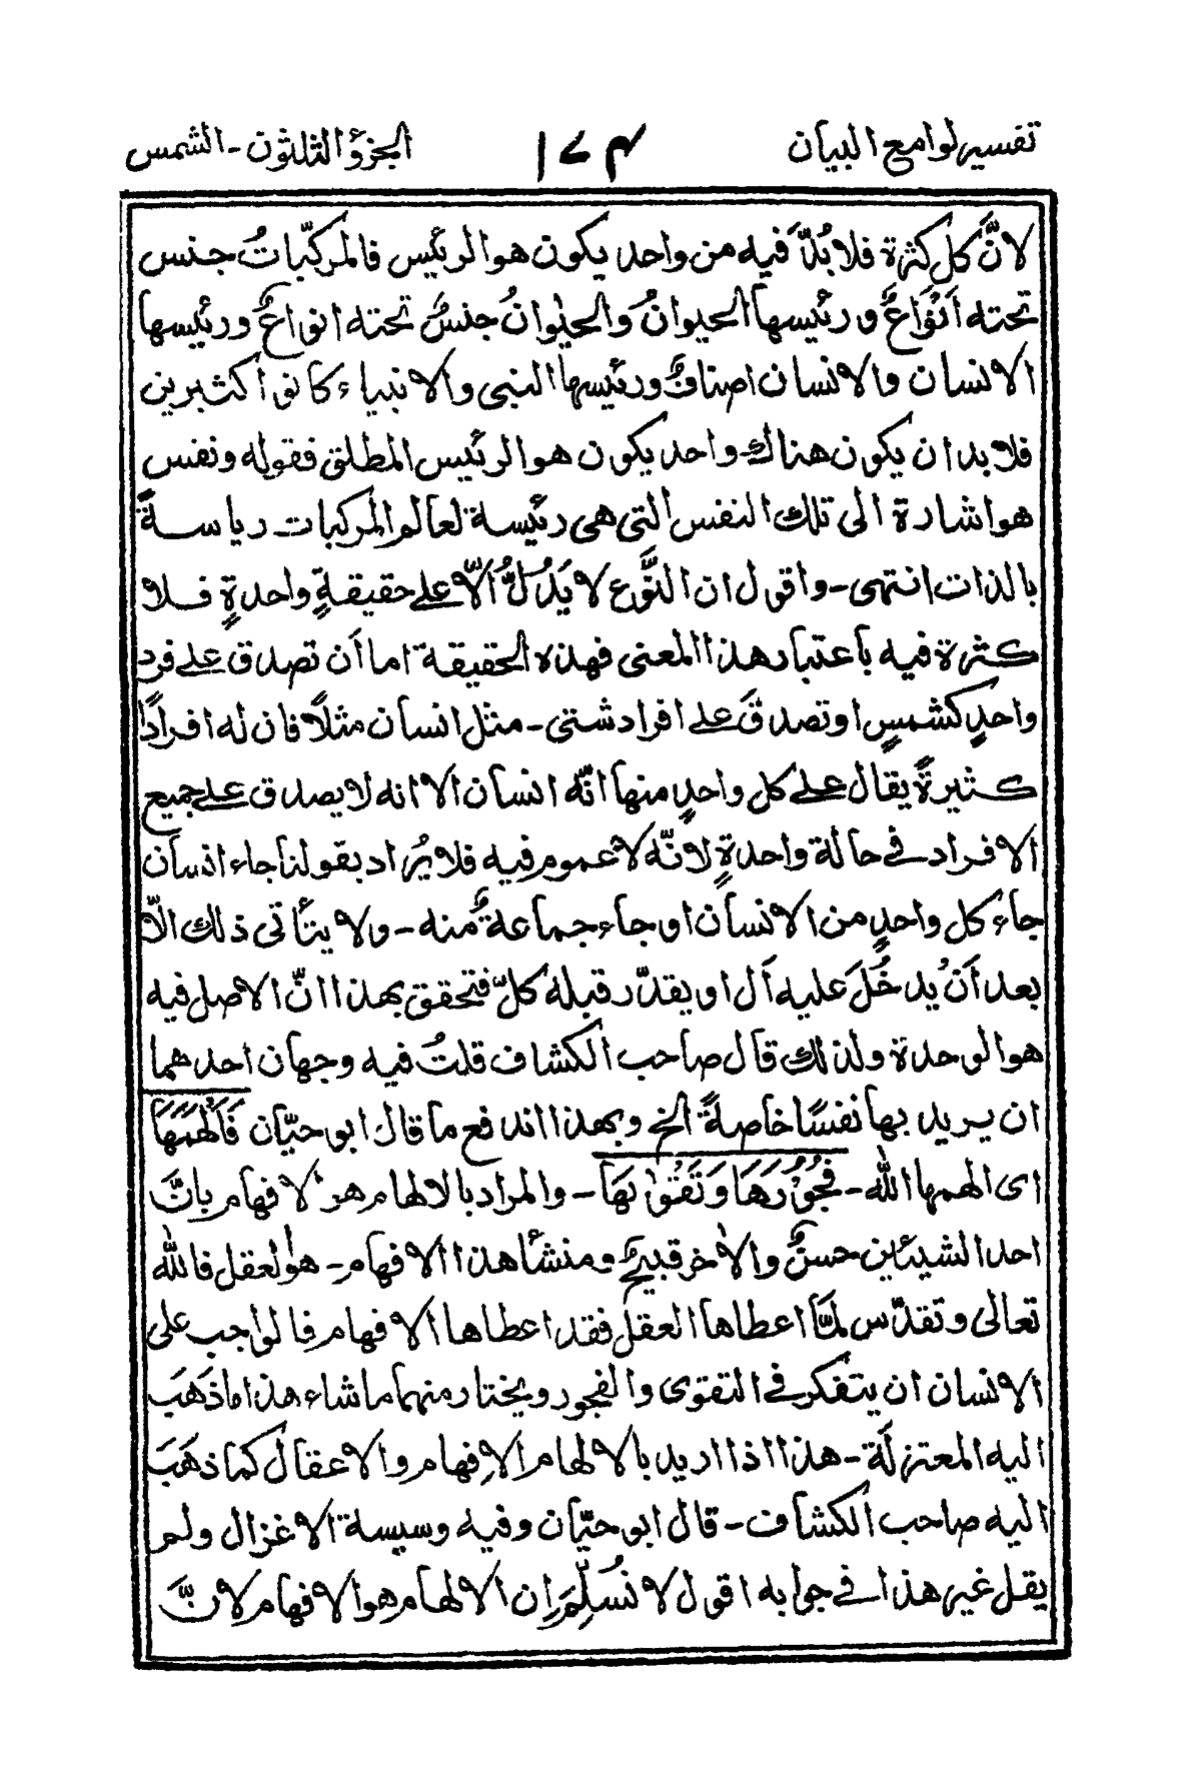 تفسير لوامع البيان ١٧٤ الجزؤ الثلثون - الشمس
لانَّ كل كثرة فلا بُدَّ فيه من واحد يكون هو الرئيس فالمركّباتُ جنس
تحته اَنْوَاعٌ ورئيسها الحيوانُ والحيوانُ جنسٌ تحته انواعٌ ورئيسها
الانسان والانسان اصنافٌ ورئيسها النبى والانبياء كانوا كثيرين
فلا بد ان يكون هناك واحد يكون هو الرئيس المطلق فقوله ونفس
هو اشارة الى تلك النفس التى هى رئيسة لعالم المركبات رياسةً
بالذات انتهى - واقول ان النَّوع لا يَدُلُّ الّا على حقيقةٍ واحدةٍ فلا
كثرة فيه باعتبار هذا المعنى فهذه الحقيقة اما اَن تصدق على فرد
واحدٍ كشمسٍ او تصدقَ على افراد شتى - مثل انسان مثلاً فان له افراداً
كثيرةً يقال على كل واحدٍ منها انّه انسان الا انه لا يصدق على جميع
الافراد فى حالة واحدةٍ لانّه لا عموم فيه فلا يُراد بقولنا جاء انسان
جاء كل واحدٍ من الانسان او جاء جماعةٌ منه - ولا يتأتى ذلك الّا
بعد اَنْ يُدخَلَ عليه اَل او يقدّر قبله كلّ فتحقق بهذا انّ الاصل فيه
هو الوحدة ولذلك قال صاحب الكشاف قلتُ فيه وجهان احدهما
ان يريد بها نفسًا خاصةً الخ وبهذا اندفع ما قال ابو حيّان فَاَلْهَمَهَا
اى الهمها الله - فُجُوْرَهَا وَتَقْوٰىهَا - والمراد بالالهام هو الافهام باَنَّ
احد الشيئين حسنٌ والاٰخر قبيحٌ ومنشأ هذا الافهام - هو العقل فالله
تعالى وتقدّس لمَّا اعطاها العقل فقد اعطاها الافهام فالواجب على
الانسان ان يتفكر فى التقوى والفجور ويختار منهما ما شاء هذا ما ذَهَبَ
اليه المعتزلَة - هذا اذا اريد بالالهام الاِفهام والاعقال كما ذهَبَ
اليه صاحب الكشاف - قال ابو حيّان وفيه وسيسة الاغزال ولم
يقل غير هذا فى جوابه اقول لا نُسلِّم اِن الالهام هو الافهام لانَّ